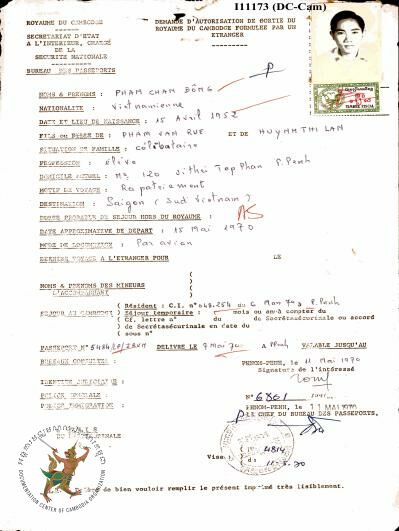 I11173 (DC-Cam)
ROYAUME DU CAMBODGE
SECRETARIAT D'ETAT
A L'INTERIEUR, CHARGÉ
DE LA
SECURITE NATIONALE
BUREAU DES PASSEPORTS
DEMANDE D'AUTORISATION DE SORTIE DU
ROYAUME DU CAMBODGE FORMULEE PAR UN
ETRANGER
NOMS & PRENOMS : PHAM CHAM DÔNG
NATIONALITE : Vietnamienne
DATE ET LIEU DE NAISSANCE : 15 Avril 1952
FILS ou FILLE DE : PHAM VAN RUE ET DE HUYNH THI LAN
SITUATION DE FAMILLE : Célibataire
PROFESSION : élève
DOMICILE ACTUEL : Nº 120 Vithei Top Phan P. Penh
MOTIF DU VOYAGE : Rapatriement
DESTINATION : Saigon (Sud Vietnam)
DUREE PROBABLE DE SEJOUR HORS DU ROYAUME :
DATE APPROXIMATIVE DE DEPART : 15 Mai 1970
MODE DE LOCOMOTION : Par avion
DERNIER VOYAGE A L'ETRANGER POUR LE
NOMS & PRENOMS DES MINEURS
L'ACCOMPAGNANT
SEJOUR AU CAMBODGE
Résident : C.I. n° 048.254 du 6 Mars 70 à P. Penh
Séjour temporaire : mois ou an à compter du
Cf. lettre n° du de Sécurinale ou accord
de Sécurinale en date du
sous n°
PASSEPORT N° DELIVRE LE 7 Mai 70 à PPenh VALABLE JUSQU'AU
BUREAUX CONSULTES :
PHNOM-PENH, le 11 Mai 1970
Signature de l'intéressé
IDENTITE JUDICIAIRE :
POLICE SPECIALE :
POLICE IMMIGRATION :
N° 6861
PHNOM-PENH, le 11 MAI 1970
LE CHEF DU BUREAU DES PASSEPORTS,
Visa
4814
11-5-70
DOCUMENTATION CENTER OF CAMBODIA ORGANIZATION
de bien vouloir remplir le présent imprimé très lisiblement.